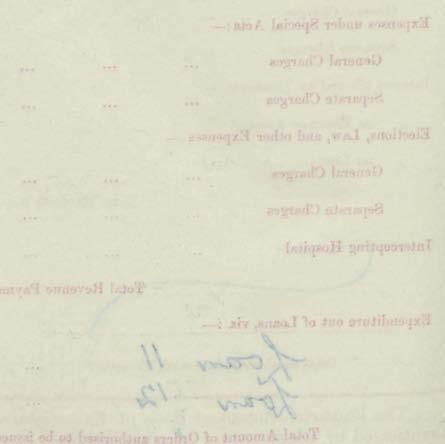 Expenses under Special Acts:—
General Charges ... ... ...
Separate Charges ... ... ...
Elections, Law, and other Expenses —
General Charges ... ... ...
Separate Charges ... ... ...
Intercepting Hospital ... ... ...
Total Revenue Payme
Expenditure out of Loans, viz :—
Loan 11 ...
Loan 12 ...
Total Amount of Orders authorised to be issue